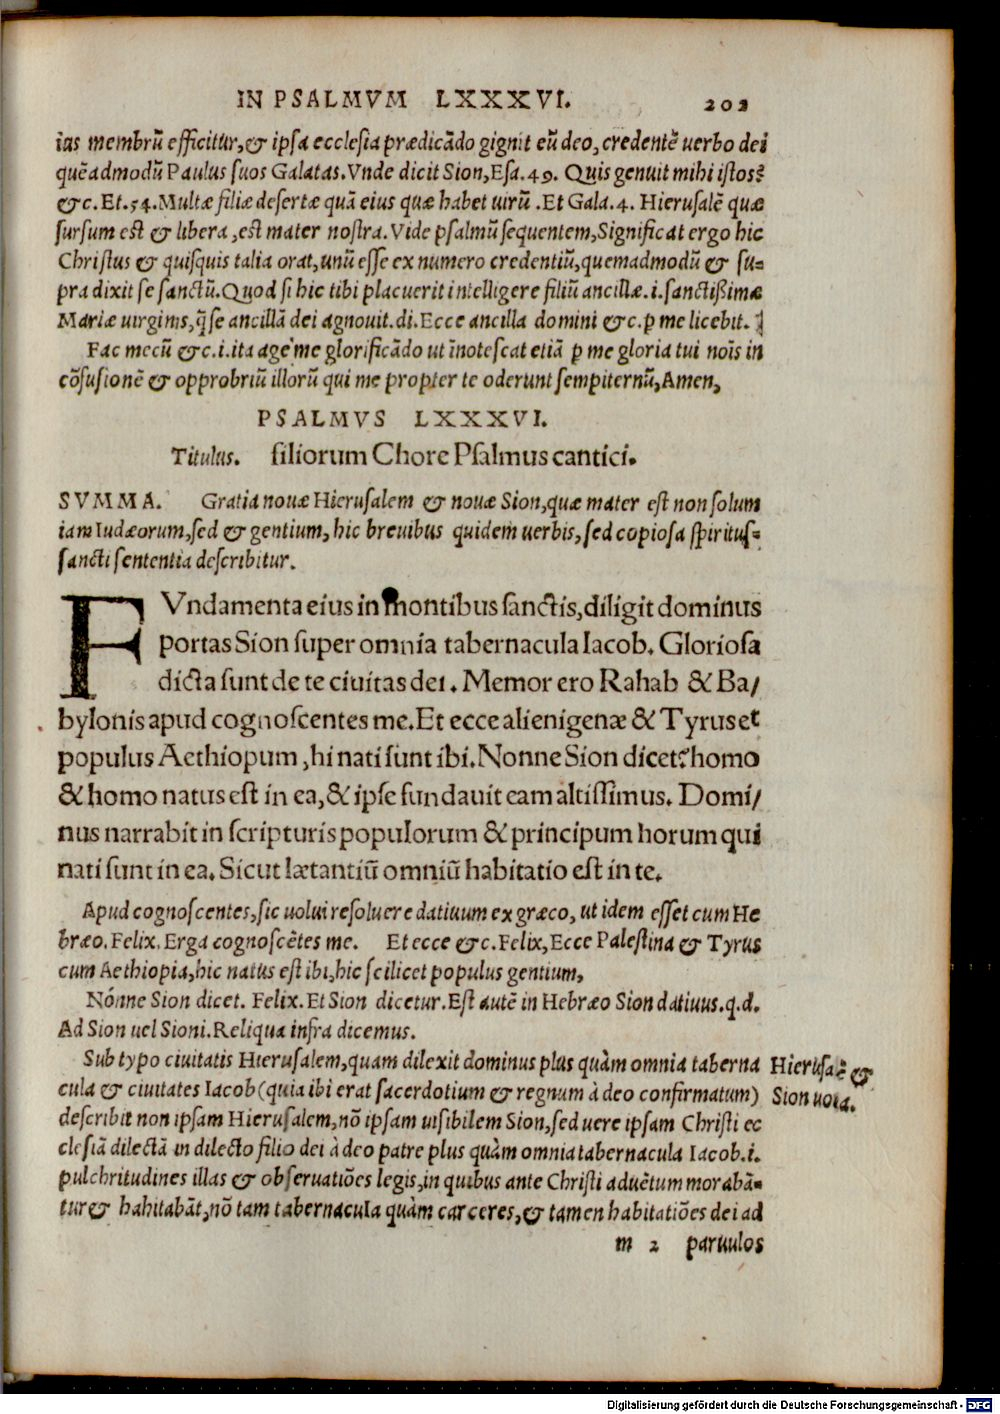 IN PSALMVM LXXXVI. 202
ius membrũ efficitur,& ipsa ecclesia prædicãdo gignit eũ deo, credentẽ uerbo dei
quẽadmodũ Paulus suos Galatas. Vnde dicit Sion, Esa. 49. Quis genuit mihi istos?
&c. Et. 54. Multæ filiæ desertæ quã eius quæ habet uirũ . Et Gala. 4. Hierusalẽ quæ
sursum est & libera ,est mater nostra. Vide psalmũ sequentem, Significat ergo hic
Christus & quisquis talia orat, unũ esse ex numero credentiũ, quemadmodũ & su-
pra dixit se sanctũ. Quod si hic tibi placuerit intelligere filiũ ancillæ.i.sanctißimæ
Mariæ uirginis, q̃ se ancillã dei agnouit.di. Ecce ancilla domini &c. p me licebit.
Fac mecũ &c.i.ita age me glorificãdo ut ĩnotescat etiã p me gloria tui nois in
cõfusionẽ & opprobriũ illorũ qui me propter te oderunt sempiternũ, Amen,
PSALMVS LXXXVI.
Titulus. filiorum Chore Psalmus cantici.
SVMMA. Gratia nouæ Hierusalem & nouæ Sion, quæ mater est non solum
iam Iudæorum, sed & gentium, hic breuibus quidem uerbis, sed copiosa spiritus-
sancti sententia describitur.
FVndamenta eius in montibus sanctis, diligit dominus
portas Sion super omnia tabernacula Iacob. Gloriosa
dicta sunt de te ciuitas dei . Memor ero Rahab & Ba/
bylonis apud cognoscentes me. Et ecce alienigenæ & Tyrus et
populus Aethiopum , hi nati sunt ibi. Nonne Sion dicet? homo
& homo natus est in ea, & ipse fundauit eam altissimus. Domi/
nus narrabit in scripturis populorum & principum horum qui
nati sunt in ea. Sicut lætantiũ omniũ habitatio est in te.
Apud cognoscentes, sic uolui resoluere datiuum ex græco, ut idem esset cum He
bræo. Felix. Erga cognoscẽtes me. Et ecce &c. Felix, Ecce Palestina & Tyrus
cum Aethiopia, hic natus est ibi, hic scilicet populus gentium,
Nónne Sion dicet. Felix. Et Sion dicetur. Est autẽ in Hebræo Sion datiuus.q.d.
Ad Sion uel Sioni. Reliqua infra dicemus.
Sub typo ciuitatis Hierusalem, quam dilexit dominus plus quàm omnia taberna
cula & ciuitates Iacob (quia ibi erat sacerdotium & regnum à deo confirmatum)
describit non ipsam Hierusalem, nõ ipsam uisibilem Sion, sed uere ipsam Christi ec
clesiã dilectã in dilecto filio dei à deo patre plus quàm omnia tabernacula Iacob.i.
pulchritudines illas & obseruatiões legis, in quibus ante Christi aduẽtum morabã-
tur & habitabãt, nõ tam tabernacula quàm carceres, & tamen habitatiões dei ad
Hierusalẽ &
Sion uera.
m 2 paruulos
Digitalisierung gefördert durch die Deutsche Forschungsgemeinschaft - DFG